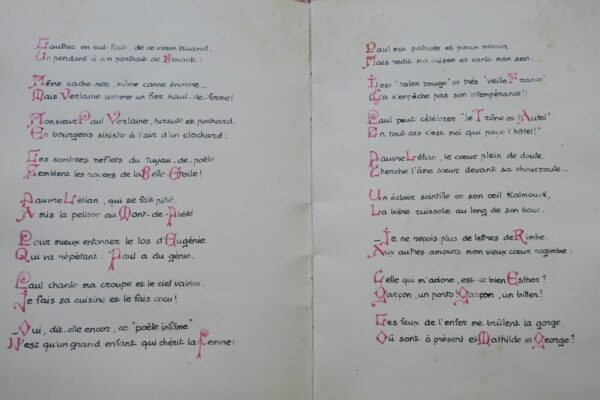 Lautrec en eut fait, de ce vieux truand,
Un pendant à son portrait de Bruant:
Même cache-nez, même canne énorme...
Mais Verlaine arbore un fier haut-de-forme!
Monsieur Paul Verlaine, hirsute et pochard,
En bourgeois sinistre à l'air d'un clochard:
Les sombres reflets du tuyau-de-poêle
Semblent les rayons de la Belle Étoile!
Pauvre Lélian, qui se fait pitié,
A mis la pelisse au Mont-de-Piété
Pour mieux entonner le los d'Eugénie
Qui va répétant: "Paul a du génie,
Paul chante ma croupe et le ciel vaincu.
Je fais sa cuisine et le fais cocu!
_Oui, dit-elle encor, ce "poète infâme"
N'est qu'un grand enfant qui chérit la femme:
Paul est patriote et pieux
Mais redit ma cuisse et vante mon sein...
Il est "talon rouge" et très "vieille France"
(Ça n'empêche pas son intempérance!)
Paul peut célébrer "le Trône et l'Autel"
En tout cas c'est moi qui paye l'hôtel!"
Pauvre Lélian, le cœur plein de doute,
Cherche l'âme sœur devant sa choucroute...
Un éclair scintille en son œil Kalmouck,
La bière ruisselle au long de son bouc.
_Je ne reçois plus de lettres de Rimbe.
Aux autres amours mon vieux cœur regimbe:
Celle qui m'adore, est-ce bien Esther?
Garçon, un porto! Garçon, un bitter!
Les feux de l'enfer me brûlent la gorge
Où sont à présent et Mathilde et George?